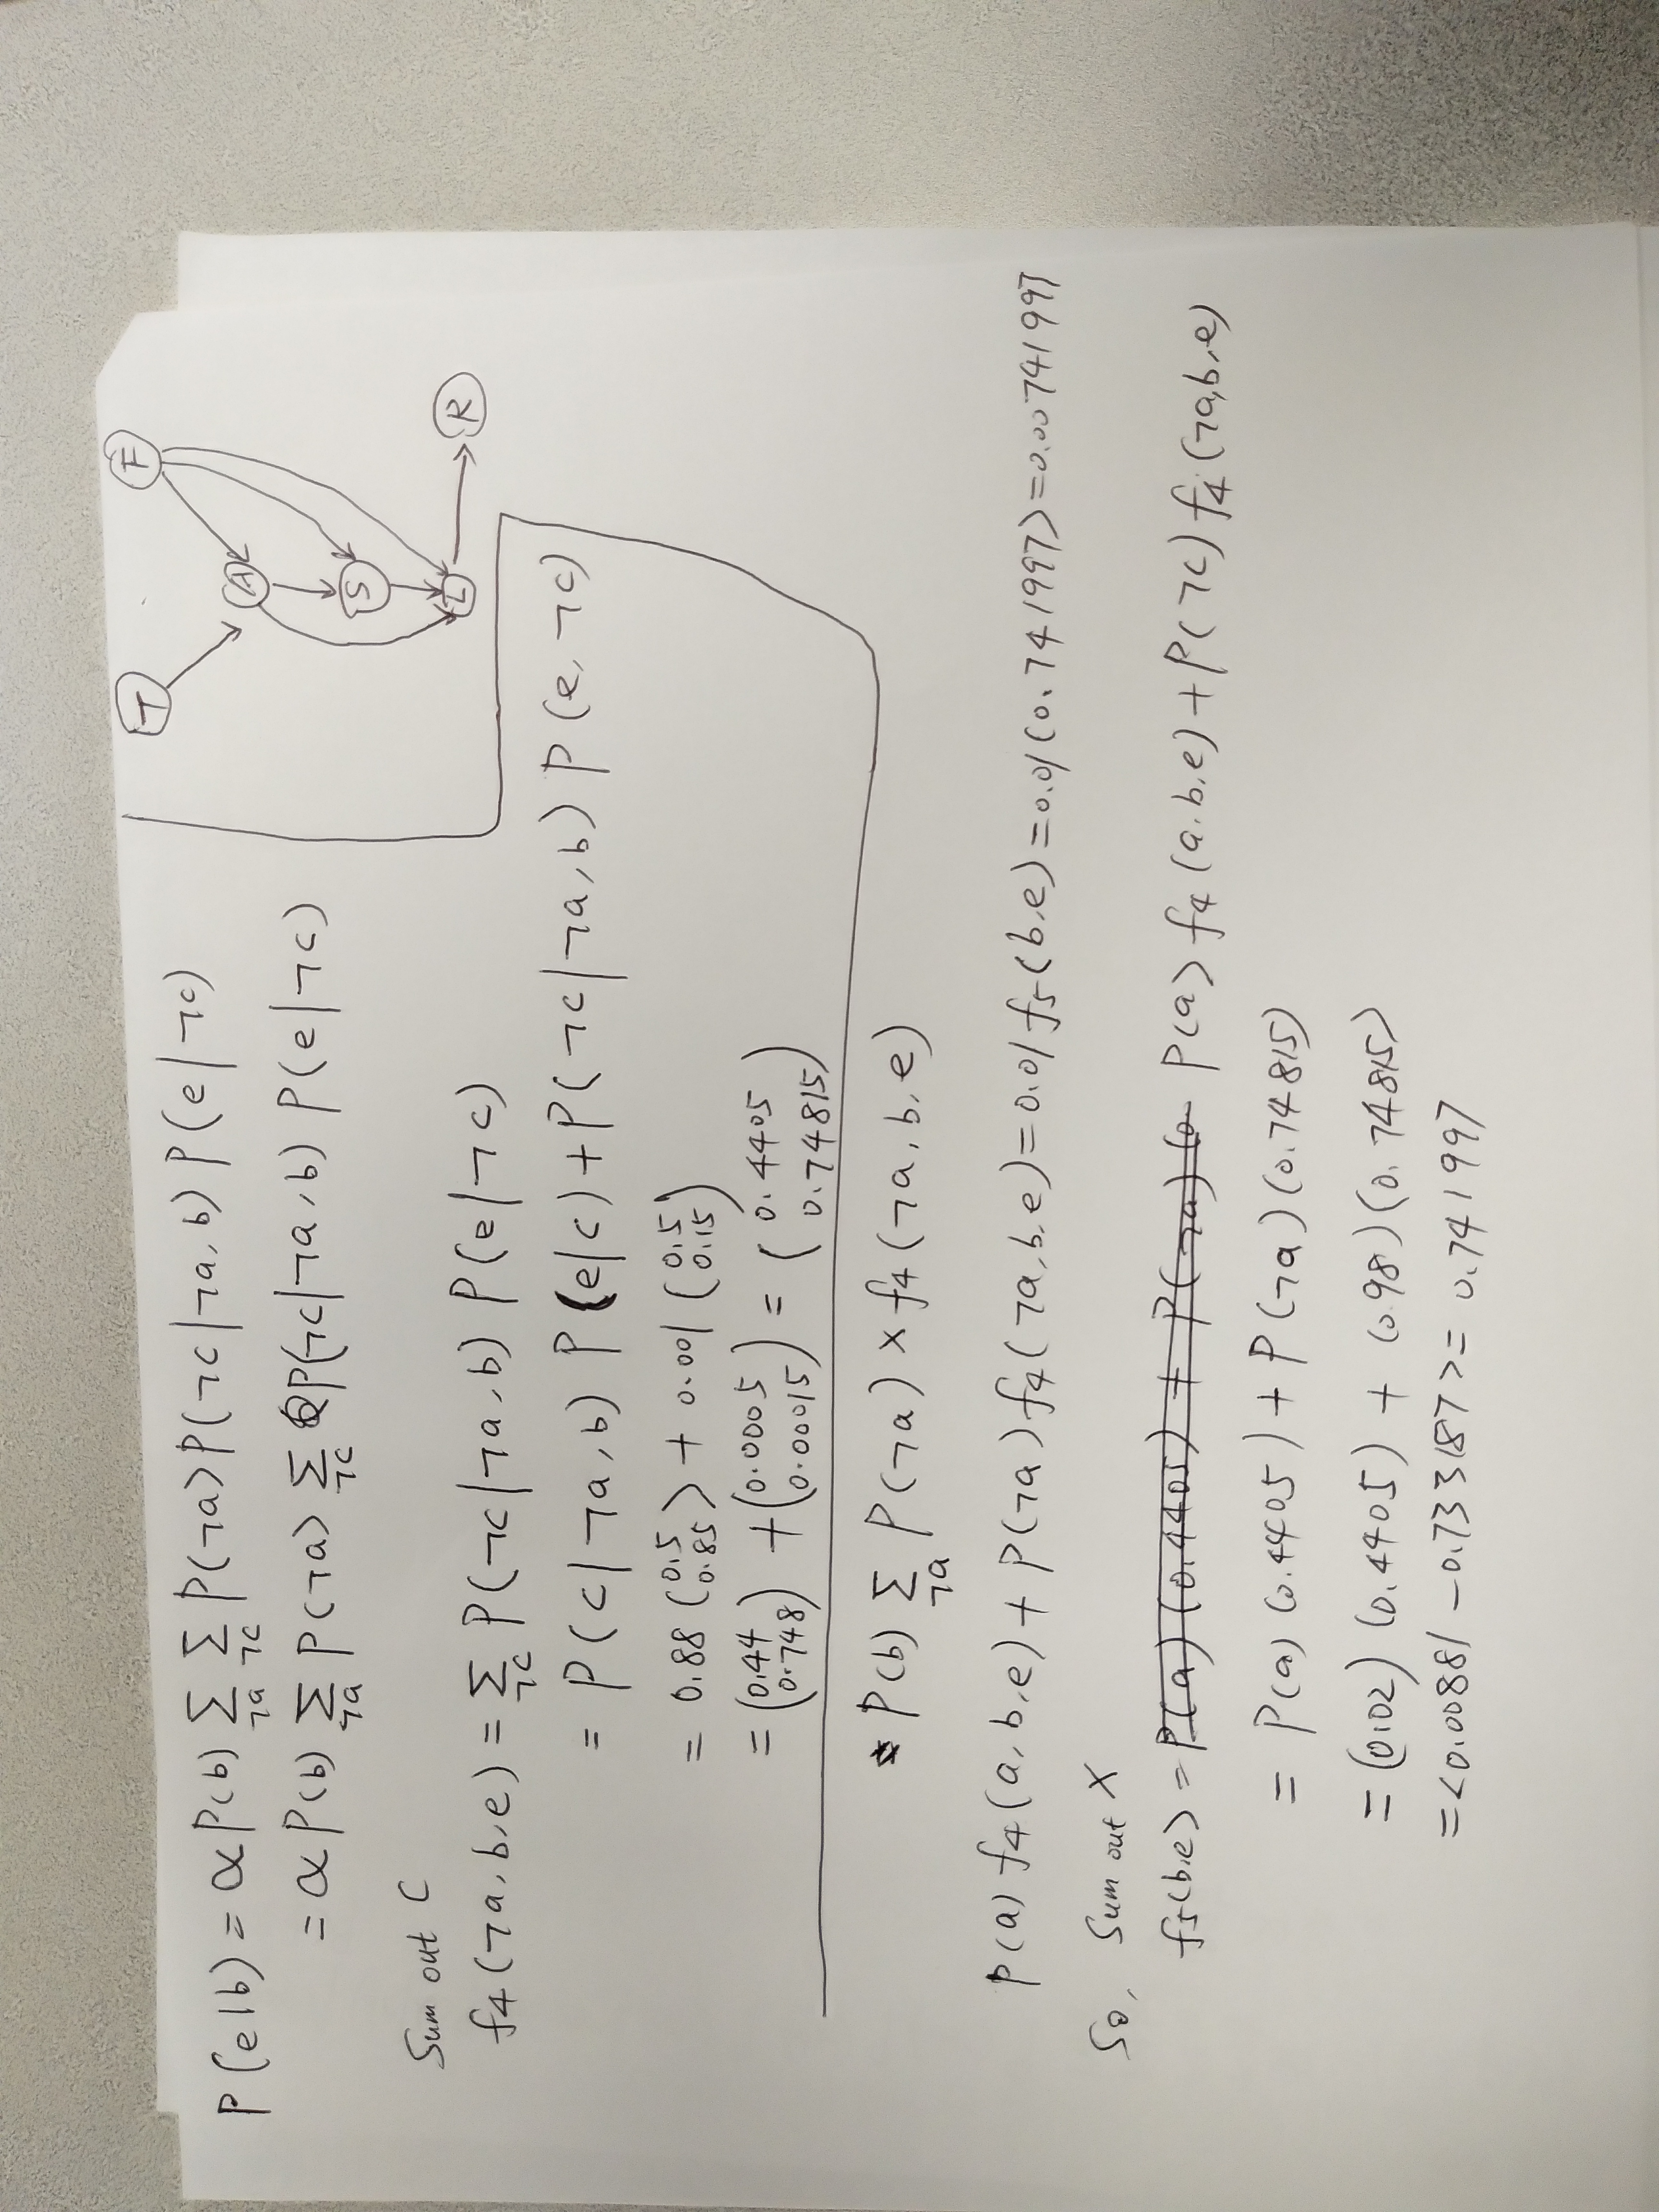 P(e|b) = α P(b) Σ_¬a Σ_¬c P(¬a) P(¬c|¬a, b) P(e|¬c)
= α P(b) Σ_¬a P(¬a) Σ_¬c P(¬c|¬a, b) P(e|¬c)
Sum out C
f4(¬a, b, e) = Σ_¬c P(¬c|¬a, b) P(e|¬c)
= P(c|¬a, b) P(e|c) + P(¬c|¬a, b) P(e, ¬c)
= 0.88 (0.5 0.85) + 0.001 (0.5 0.15)
= (0.44 0.748) + (0.0005 0.00015) = (0.4405 0.74815)
T
F
A
S
L
R
* P(b) Σ_¬a P(¬a) × f4(¬a, b, e)
P(a) f4(a, b, e) + P(¬a) f4(¬a, b, e) = 0.01 f5(b, e) = 0.01(0.741997) = 0.00741997
So, Sum out X
f5(b,e) = P(a)(0.4405) + P(¬a)(0. P(a) f4(a, b, e) + P(¬c) f4(¬a, b, e)
= P(a) (0.4405) + P(¬a) (0.74815)
= (0.02) (0.4405) + (0.98) (0.74815)
= <0.00881 - 0.733187> = 0.741997